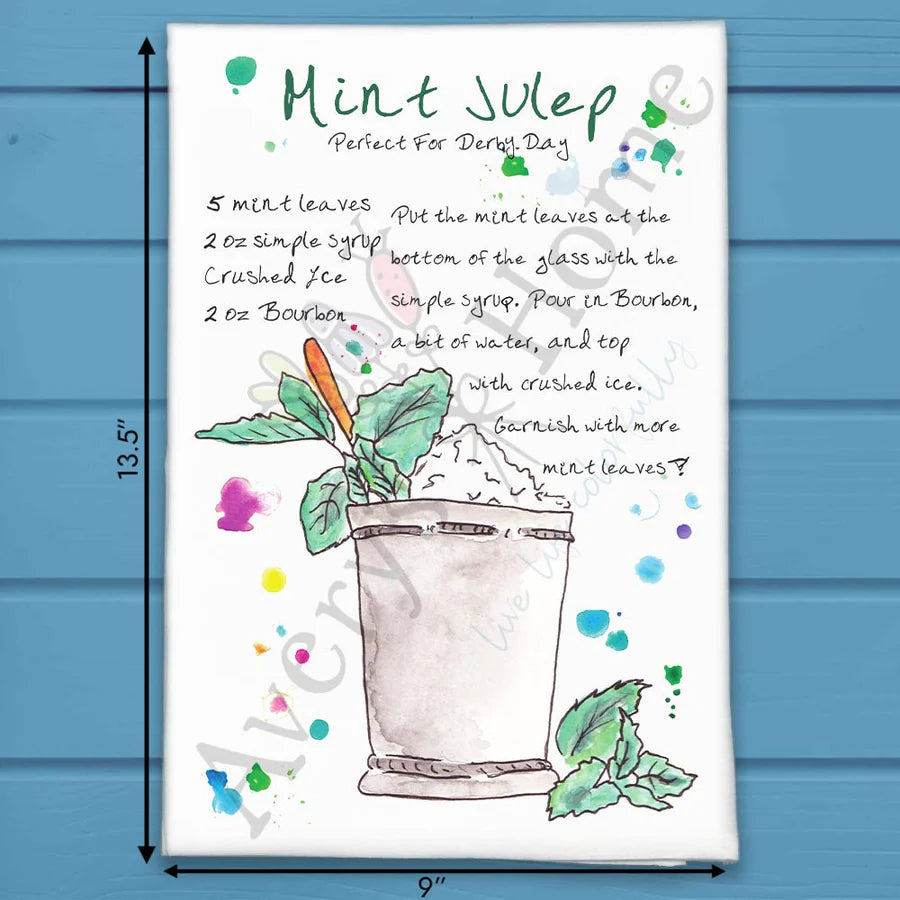 Mint Julep
Perfect For Derby Day
5 mint leaves
2 oz simple syrup
Crushed Ice
2 oz Bourbon
Put the mint leaves at the
bottom of the glass with the
simple syrup. Pour in Bourbon,
a bit of water, and top
with crushed ice.
Garnish with more
mint leaves!
Avery's Home
live life colorfully
13.5”
9”